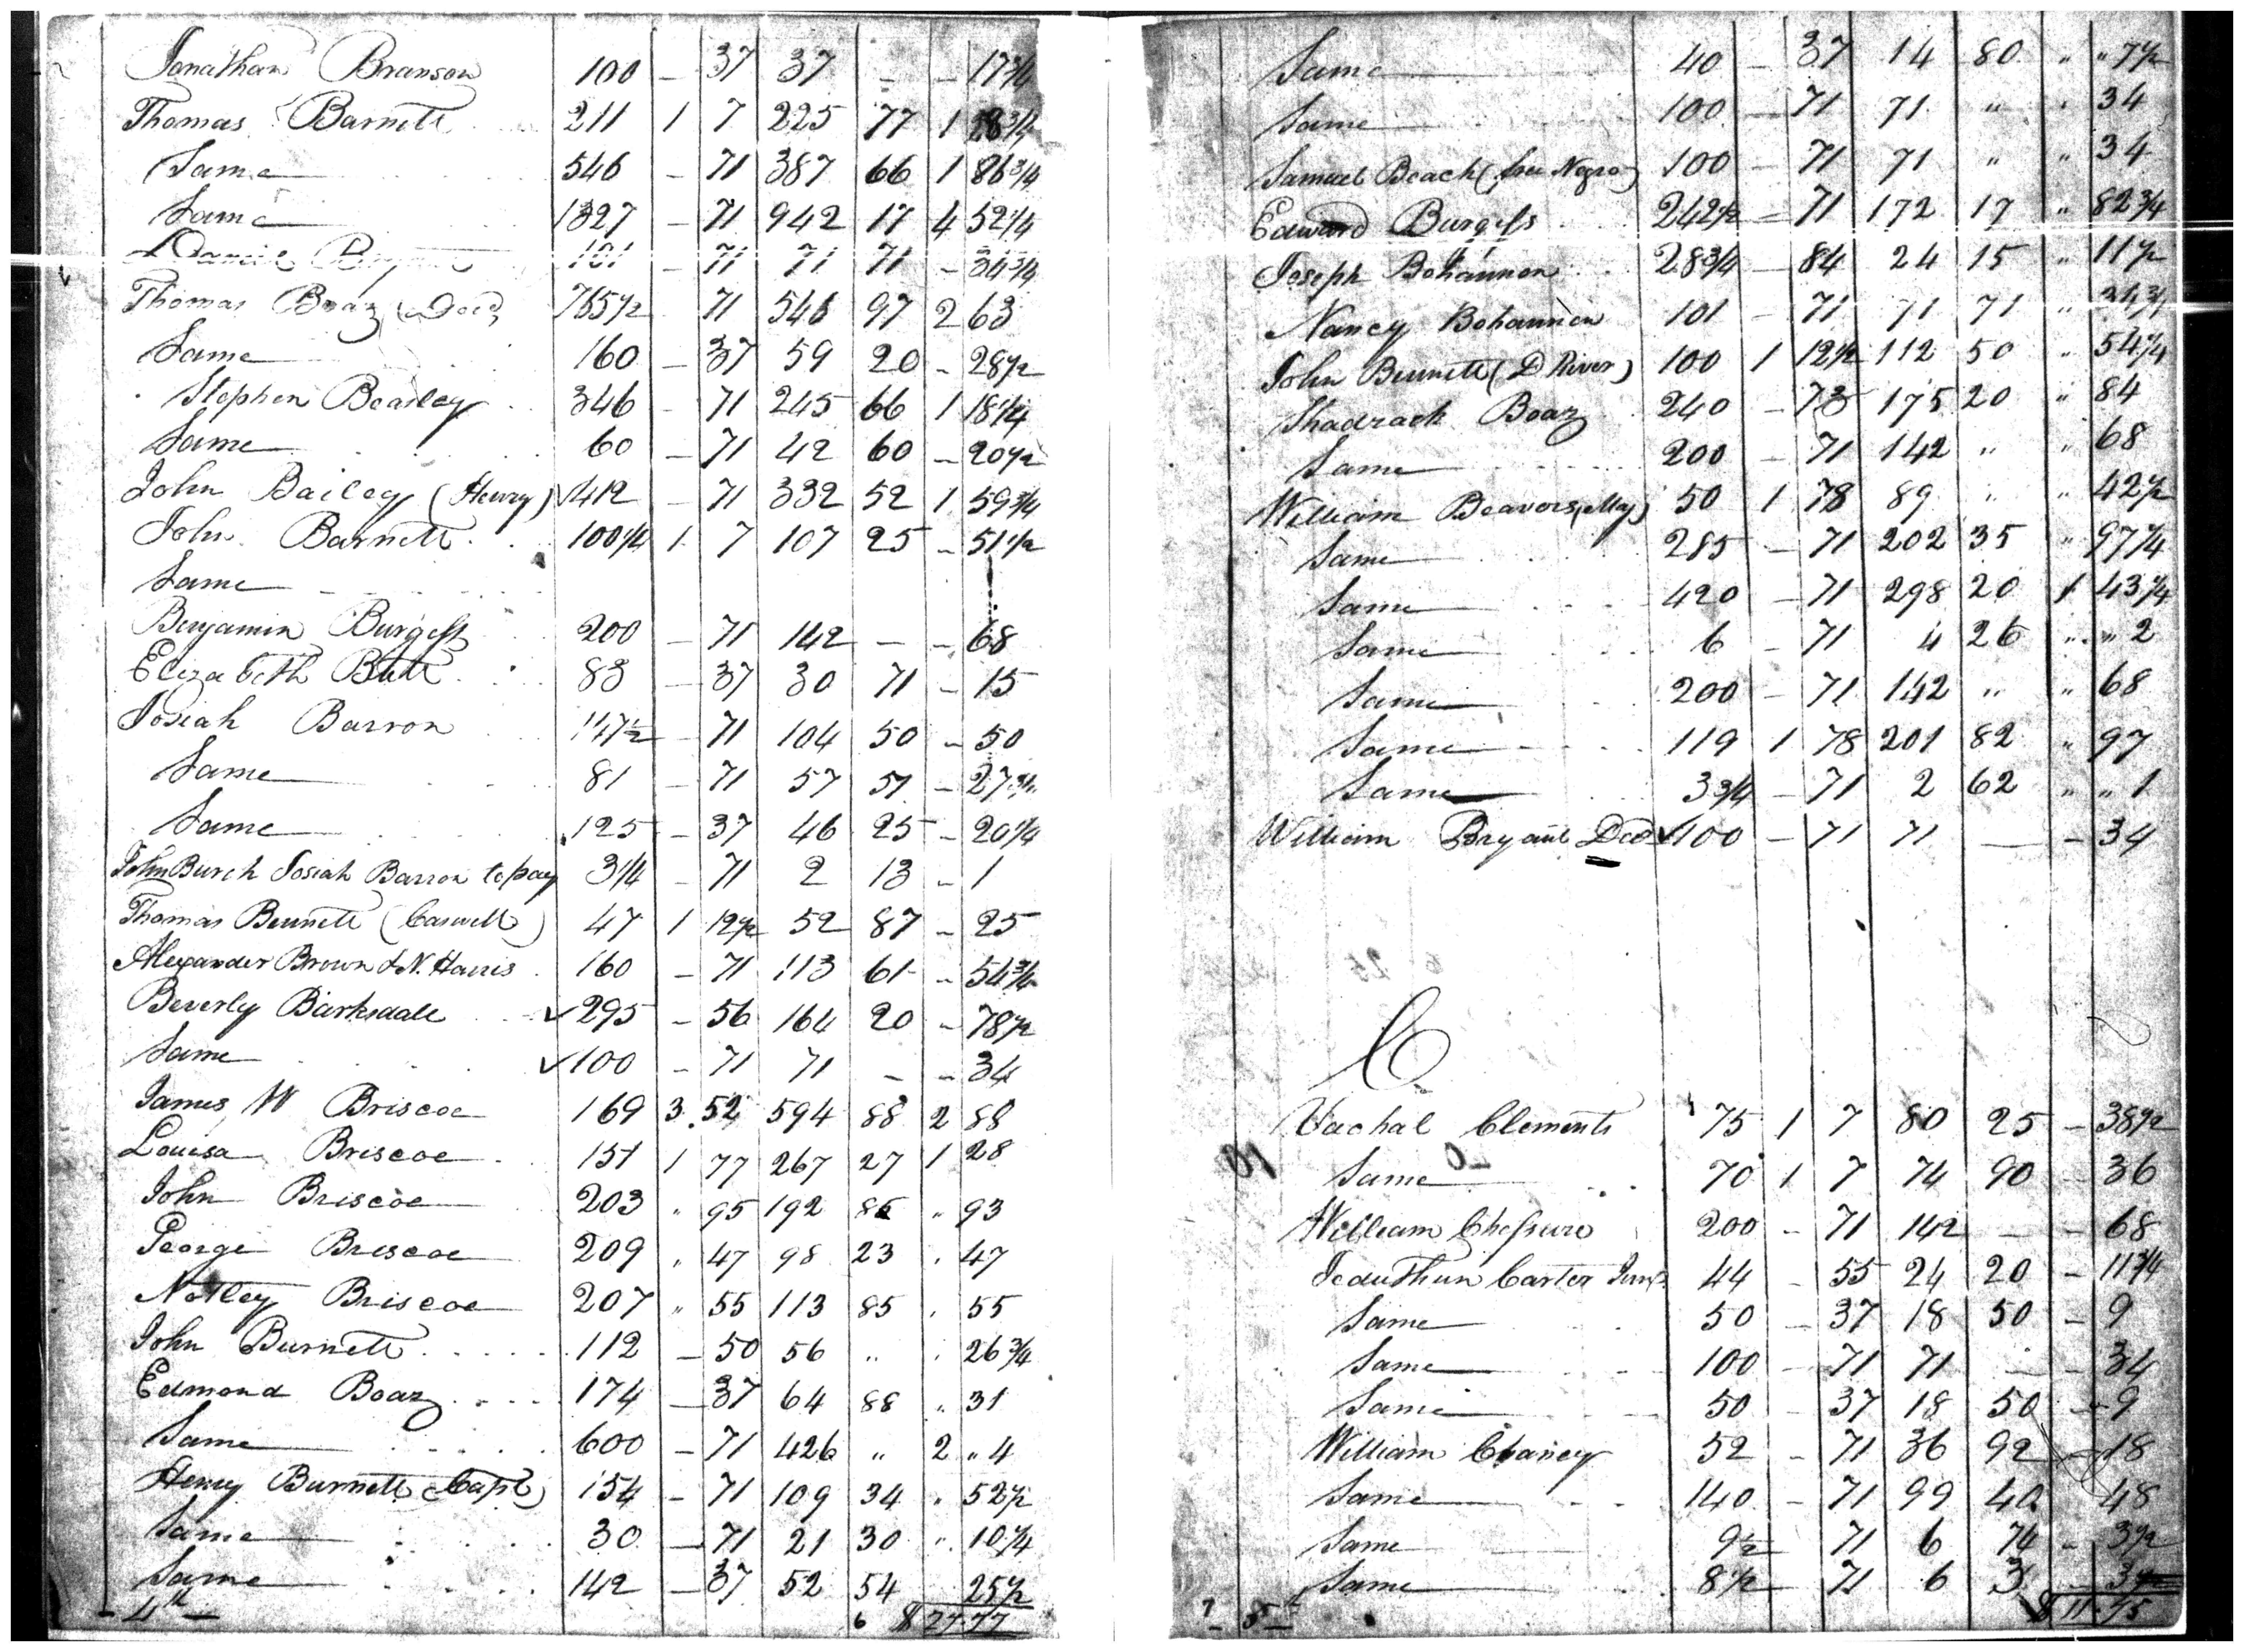 Jonathan Branson 100 - 37 37 - - 17 3/4
Thomas Barnett 211 1 7 225 77 1 28 3/4
Same 546 - 71 387 66 1 86 3/4
Same 1327 - 71 942 17 4 52 1/4
Daniel 101 - 71 71 71 - 34 3/4
Thomas Boaz (Decd) 765 1/2 71 546 97 2 63
Same 160 - 37 59 20 - 28 1/2
Stephen Beasley 346 - 71 245 66 1 18 1/4
Same 60 - 71 42 60 - 20 1/2
John Bailey (Henry) 412 - 71 332 52 1 59 3/4
John Barnett 100 1/4 1 7 107 25 - 51 1/2
Same
Benjamin Burgess 200 - 71 142 - - 68
Elizabeth 83 - 37 30 71 - 15
Josiah Barron 147 1/2 - 71 104 50 - 50
Same 81 - 71 57 51 - 27 3/4
Same 125 - 37 46 25 - 20 1/4
John Burch Josiah Barron to pay 3 1/4 - 71 2 13 - 1
Thomas Bennett (Caswell) 47 1 12 1/2 52 87 - 25
Alexander Brown & N. Harris 160 - 71 113 61 - 54 3/4
Beverly Barksdale ✓ 295 - 56 164 20 - 78 1/2
Same ✓ 100 - 71 71 - - 34
James W Briscoe 169 3 52 594 88 2 88
Louisa Briscoe 151 1 77 267 27 1 28
John Briscoe 203 " 95 192 85 " 93
George Briscoe 209 " 47 98 23 " 47
Notley Briscoe 207 " 55 113 85 " 55
John Burnett 112 - 50 56 " " 26 3/4
Edmond Boaz 174 - 37 64 88 " 31
Same 600 - 71 426 " 2 " 4
Henry Burnett (Capt) 154 - 71 109 34 " 52 1/2
Same 30 - 71 21 30 " 10 1/4
Same 142 - 37 52 54 25 1/2
- 4th - 6 $27.77
Same 40 - 37 14 80 " " 7 1/2
Same 100 - 71 71 " " 34
Samuel Beach (free Negro) 100 - 71 71 " " 34
Edward Burgess 242 1/2 - 71 172 17 " 82 3/4
Joseph Bohannon 28 3/4 - 84 24 15 " 11 1/2
Nancy Bohannon 101 - 71 71 71 " 34 3/4
John Bennett (D River) 100 1 12 1/2 112 50 " 54 1/4
Shadrach Boaz 240 - 73 175 20 " 84
Same 200 - 71 142 " " 68
William Beavers (Maj) 50 1 78 89 " " 42 1/2
Same 285 - 71 202 35 " 97 1/4
Same 420 - 71 298 20 1 43 1/4
Same 6 - 71 4 26 " " 2
Same 200 - 71 142 " " 68
Same 119 1 78 201 82 " 97
Same 3 3/4 - 71 2 62 " " 1
William Bryant Decd ✓ 100 - 71 71 - - 34
C
Vachal Clements 75 1 7 80 25 - 38 1/2
Same 70 1 7 74 90 - 36
William Cheshire 200 - 71 142 - - 68
Jeduthun Carter Junr 44 - 55 24 20 - 11 3/4
Same 50 - 37 18 50 - 9
Same 100 - 71 71 - - 34
Same 50 - 37 18 50 - 9
William Chaney 52 - 71 36 92 - 18
Same 140 - 71 99 40 48
Same 9 1/2 71 6 74 - 3 1/2
Same 8 1/2 - 71 6 3 - 3
5th $11.75